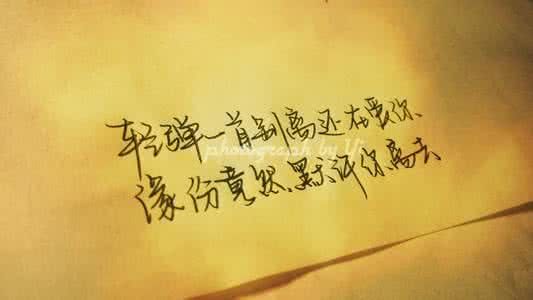 轻弹一首别离还在爱你、
photograph by Yi
缘份竟然、默许你离去